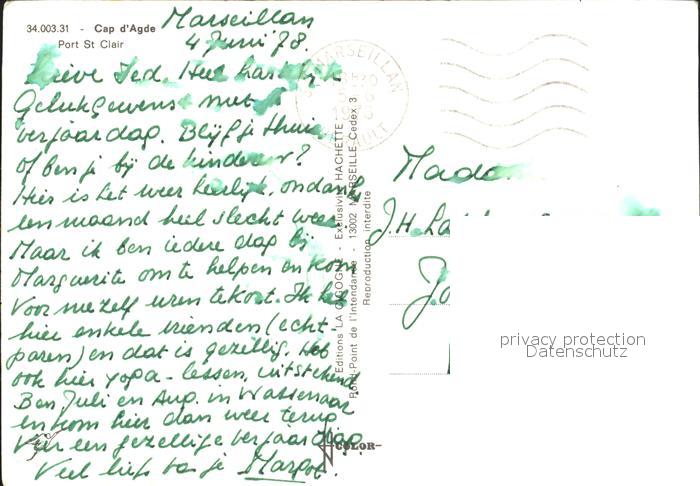 34.003.31 - Cap d'Agde
Port St Clair
Marseillan
4 Juni 78.
Lieve Jed. Heel hartelijk
Gelukgewenst met je
verjaardag. Blijf je thuis
of ben je bij de kinderen?
Hier is het weer heerlijk, ondanks
een maand heel slecht weer.
Maar ik ben iedere dag bij
Marguerite om te helpen en kom
voor mezelf uren tekort. Ik heb
hier enkele vrienden (echt-
paren) en dat is gezellig. Heb
ook hier yoga-lessen, uitstekend
Ben Juli en Aug. in Wassenaar
en kom hier dan weer terug
Vier een gezellige verjaardag
Veel liefs van je Margot.
MARSEILLAN
HERAULT
Editions LA CIGOGNE - Exclusivité HACHETTE
Rond-Point de l'Intendance - 13002 MARSEILLE Cedex 3
Reproduction interdite
COLOR
Mada
J.H. La
privacy protection
Datenschutz